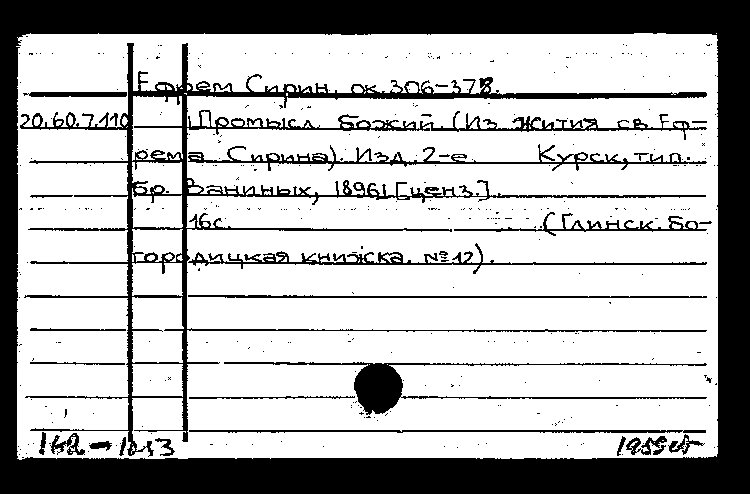 Ефрем Сирин, ок. 306-378.
20.60.7.110 Промысл Божий. (Из жития св. Еф-
рема Сирина). Изд. 2-е. Курск, тип.
бр. Ваниных, 1896 [ценз.].
16с. (Глинск. Бо-
городицкая книжка. №12).